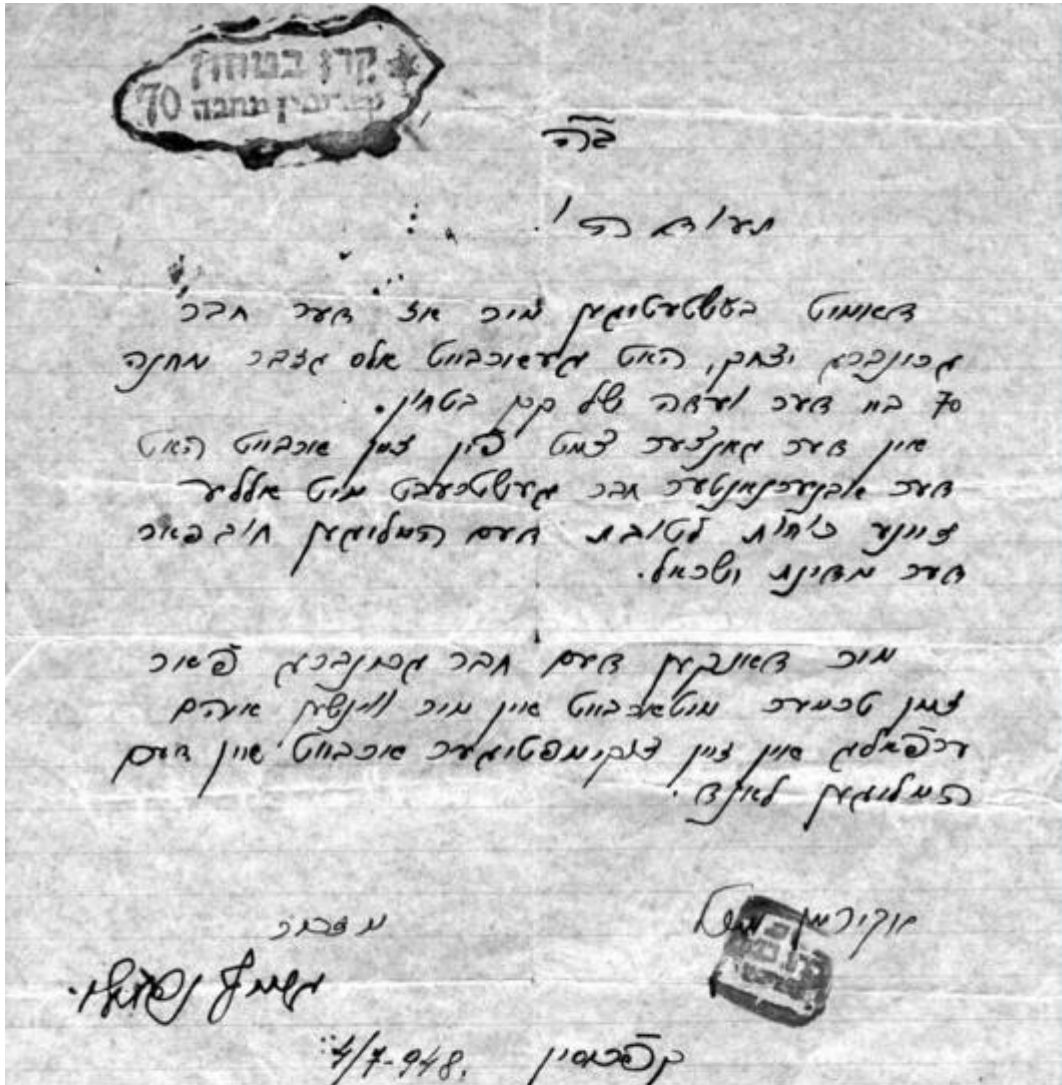 קרן בטחון
קפריסין מחנה 70
ב״ה
תעודה
דאמיט בעשטעטיגען מיר אז דער חבר
גרונברג יצחק, האט געארבייט אלס גזבר מחנה
70 בײ דער ועדה של קרן בטחון.
אין דער גאנצער צײט פֿון זײן ארבייט האט
דער אבנגענאנטער חבר געשטרעבט מיט אללע
זיינע כוחות לטובת דעם הייליגען חוב פאר
דער מדינת ישראל.
מיר דאנקען דעם חבר גרונברג פֿאר
זײן טרײער מיטארבייט אין מיר ווינשען איהם
ערפֿאלג אין זיין צוקימפטיגער ארבייט אין דעם
הייליגען לאנד.
מזכיר
קפריסין 4/7-948.